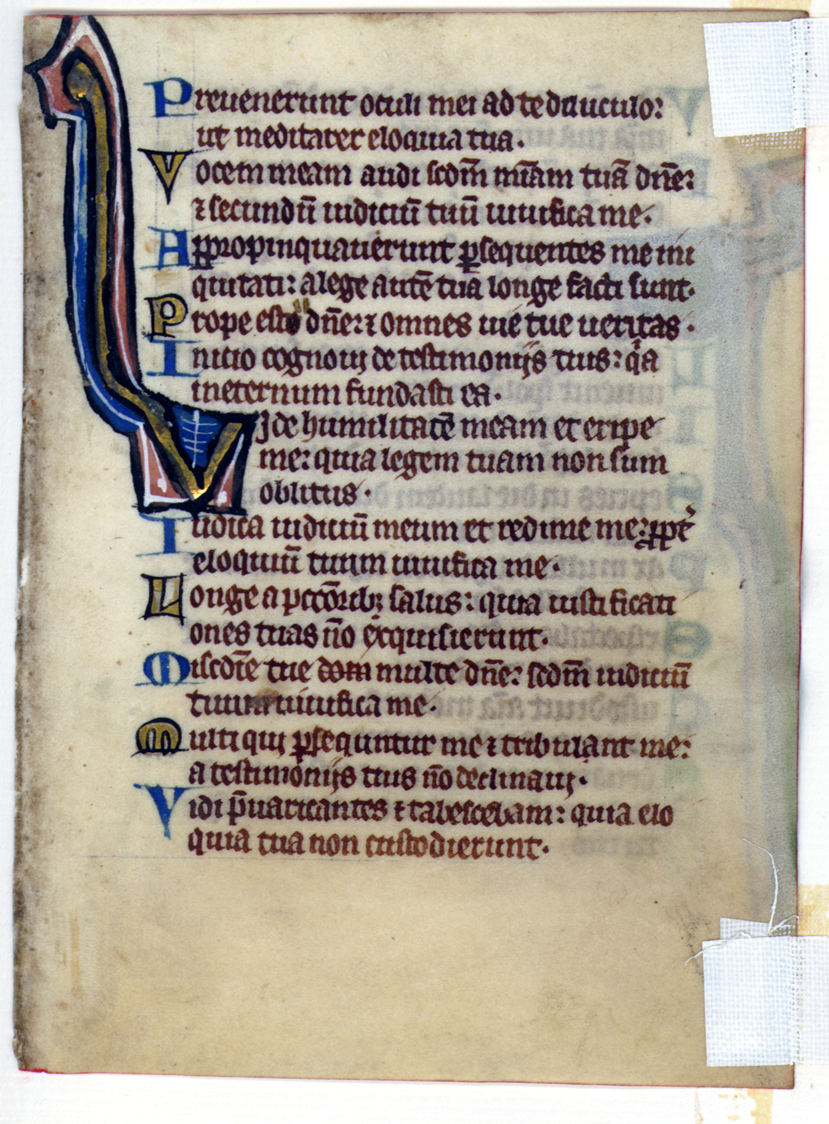 Preuenerunt oculi mei ad te diluculo:
ut meditarer eloquia tua.
Vocem meam audi scdm̅ mi̅am tua̅ dn̅e:
⁊ secundu̅ iudiciu̅ tuu̅ uiuifica me.
Appropinquauerunt ꝑsequentes me ini
quitati: a lege aute̅ tua longe facti sunt.
Prope esto dn̅e: ⁊ omnes uie tue ueritas.
Initio cognouij de testimonijs tuis: qͣa
ineternum fundasti ea.
Vide humilitate̅ meam et eripe
me: quia legem tuam non sum
oblitus.
Iudica iudiciu̅ meum et redime me: ꝓpt̾
eloquiu̅ tuum uiuifica me.
Longe a pcco̅ribꝫ salus: quia iustificati
ones tuas no̅ exquisierunt.
Miscd̅ie tue dom multe dn̅e: scdm̅ iudiciu̅
tuum uiuifica me.
Multi qui ꝑsequntur me ⁊ tribulant me:
a testimonijs tuis no̅ declinauj.
Vidi p̅uaricantes ⁊ tabescebam: quia elo
quia tua non custodierunt.